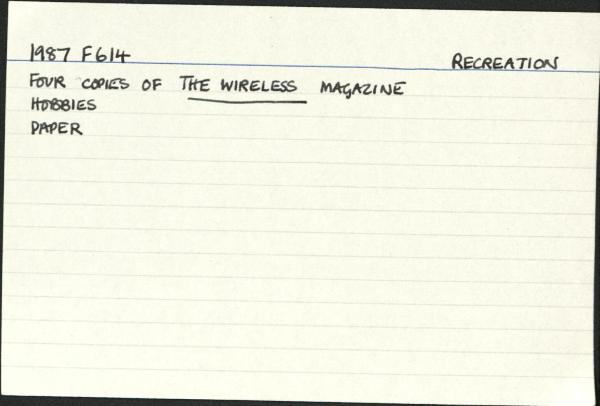 1987 F614
RECREATION
FOUR COPIES OF THE WIRELESS MAGAZINE
HOBBIES
PAPER